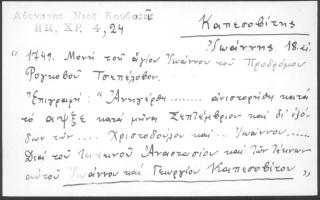 Αθανασιος Νεος Κουβαρᾶς
ΗΠ, ΧΡ. 4, 24
Καπεσοβίτης
Ἰωάννης 18. αἰ.
"1749. Μονή τοῦ ἁγίου Ἰωάννου τοῦ Προδρόμου
Ρογκοβοῦ Τσεπέλοβον.
Ἐπιγραφή: "Ἀνηγέρθη ........ ἀνιστορήθη κατά
τό αψξε κατά μῆνα Σεπτέμβριον καί δι' ἐξό-
δων τῶν ..... Χριστοδούλου καί .. Ἰωάννου .....
Διά τοῦ ταπεινοῦ Ἀναστασίου καί τῶν τέκνων
αὐτοῦ Ἰωάννου καί Γεωργίου Καπεσοβίτου "